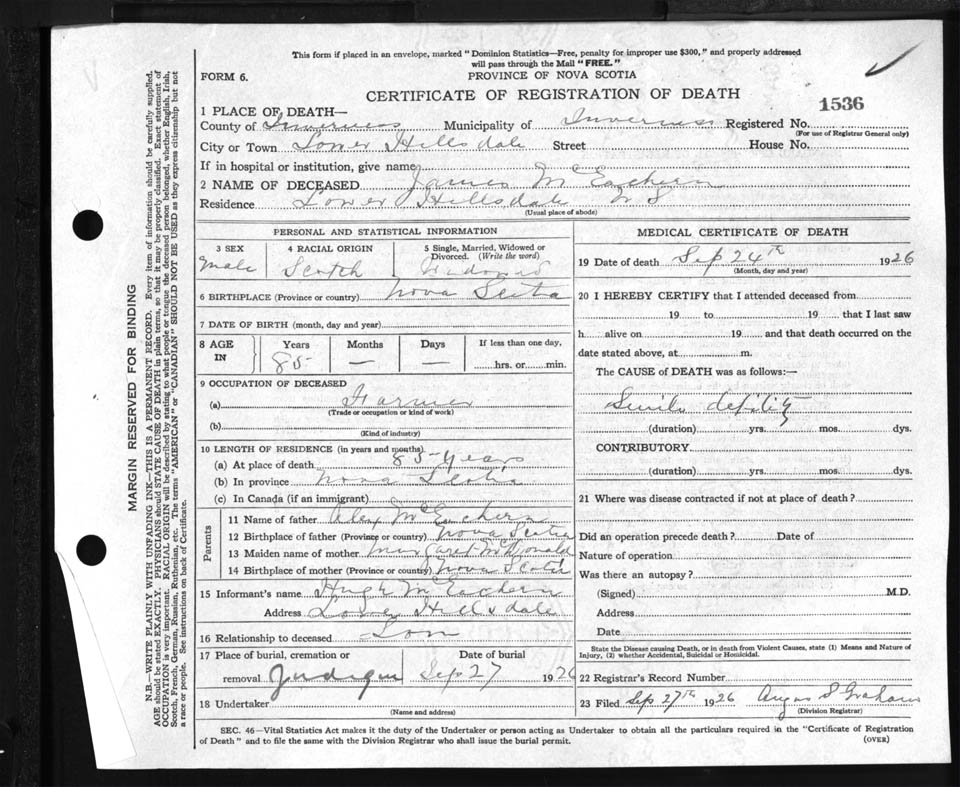 This form if placed in an envelope, marked "Dominion Statistics—Free, penalty for improper use $300," and properly addressed
will pass through the Mail "FREE."
FORM 6.
PROVINCE OF NOVA SCOTIA
CERTIFICATE OF REGISTRATION OF DEATH
1536
1 PLACE OF DEATH—
County of Inverness Municipality of Inverness Registered No.
(For use of Registrar General only)
City or Town Lower Hillsdale Street House No.
If in hospital or institution, give name
2 NAME OF DECEASED James McEachern
Residence Lower Hillsdale N S
(Usual place of abode)
PERSONAL AND STATISTICAL INFORMATION
3 SEX Male
4 RACIAL ORIGIN Scotch
5 Single, Married, Widowed or Divorced. (Write the word)
6 BIRTHPLACE (Province or country) Nova Scotia
7 DATE OF BIRTH (month, day and year)
8 AGE IN Years 85 Months — Days — If less than one day, hrs. or min.
9 OCCUPATION OF DECEASED
(a) Farmer
(Trade or occupation or kind of work)
(b)
(Kind of industry)
10 LENGTH OF RESIDENCE (in years and months)
(a) At place of death 85 Years
(b) In province Nova Scotia
(c) In Canada (if an immigrant)
Parents
11 Name of father Alex McEachern
12 Birthplace of father (Province or country) Nova Scotia
13 Maiden name of mother Margaret McDonald
14 Birthplace of mother (Province or country) Nova Scotia
15 Informant's name Hugh McEachern
Address Lower Hillsdale
16 Relationship to deceased Son
17 Place of burial, cremation or removal Judique
Date of burial Sep 27 1926
18 Undertaker
(Name and address)
MEDICAL CERTIFICATE OF DEATH
19 Date of death Sep 24th 1926
(Month, day and year)
20 I HEREBY CERTIFY that I attended deceased from
19 to 19 that I last saw
h alive on 19 and that death occurred on the
date stated above, at m.
The CAUSE of DEATH was as follows:—
Senile debility
(duration) yrs. mos. dys.
CONTRIBUTORY
(duration) yrs. mos. dys.
21 Where was disease contracted if not at place of death?
Did an operation precede death? Date of
Nature of operation
Was there an autopsy?
(Signed) M.D.
Address
Date
State the Disease causing Death, or in death from Violent Causes, state (1) Means and Nature of
Injury, (2) whether Accidental, Suicidal or Homicidal.
22 Registrar's Record Number
23 Filed Sep 27th 1926 Angus S Graham
(Division Registrar)
SEC. 46—Vital Statistics Act makes it the duty of the Undertaker or person acting as Undertaker to obtain all the particulars required in the "Certificate of Registration
of Death" and to file the same with the Division Registrar who shall issue the burial permit.
(OVER)
MARGIN RESERVED FOR BINDING
N.B.—WRITE PLAINLY WITH UNFADING INK—THIS IS A PERMANENT RECORD. Every item of information should be carefully supplied.
AGE should be stated EXACTLY. PHYSICIANS should STATE CAUSE OF DEATH in plain terms, so that it may be properly classified. Exact statement of
OCCUPATION is very important. RACIAL ORIGIN will be described by stating to what people or tongue the deceased person belonged, whether English, Irish,
Scotch, French, German, Russian, Ruthenian, etc. The terms "AMERICAN" or "CANADIAN" SHOULD NOT BE USED as they express citizenship but not
a race or people. See instructions on back of Certificate.